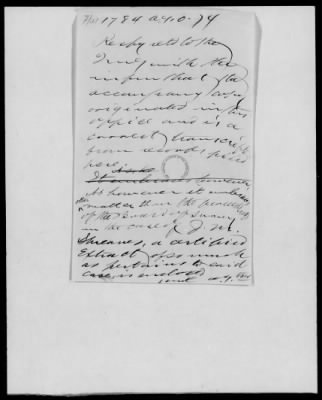 1784 A.G.O. 74
Respy retd to the
with the
inform that the
accompany copy
originated in this
office and is a
correct transcript
from records filed
here.
As however it embraces
other matter than the proceedgs
of the Board of Survey
in the case of J. M.
a certified
Extract of so much
as pertains to said
case, is enclosed
A.G.